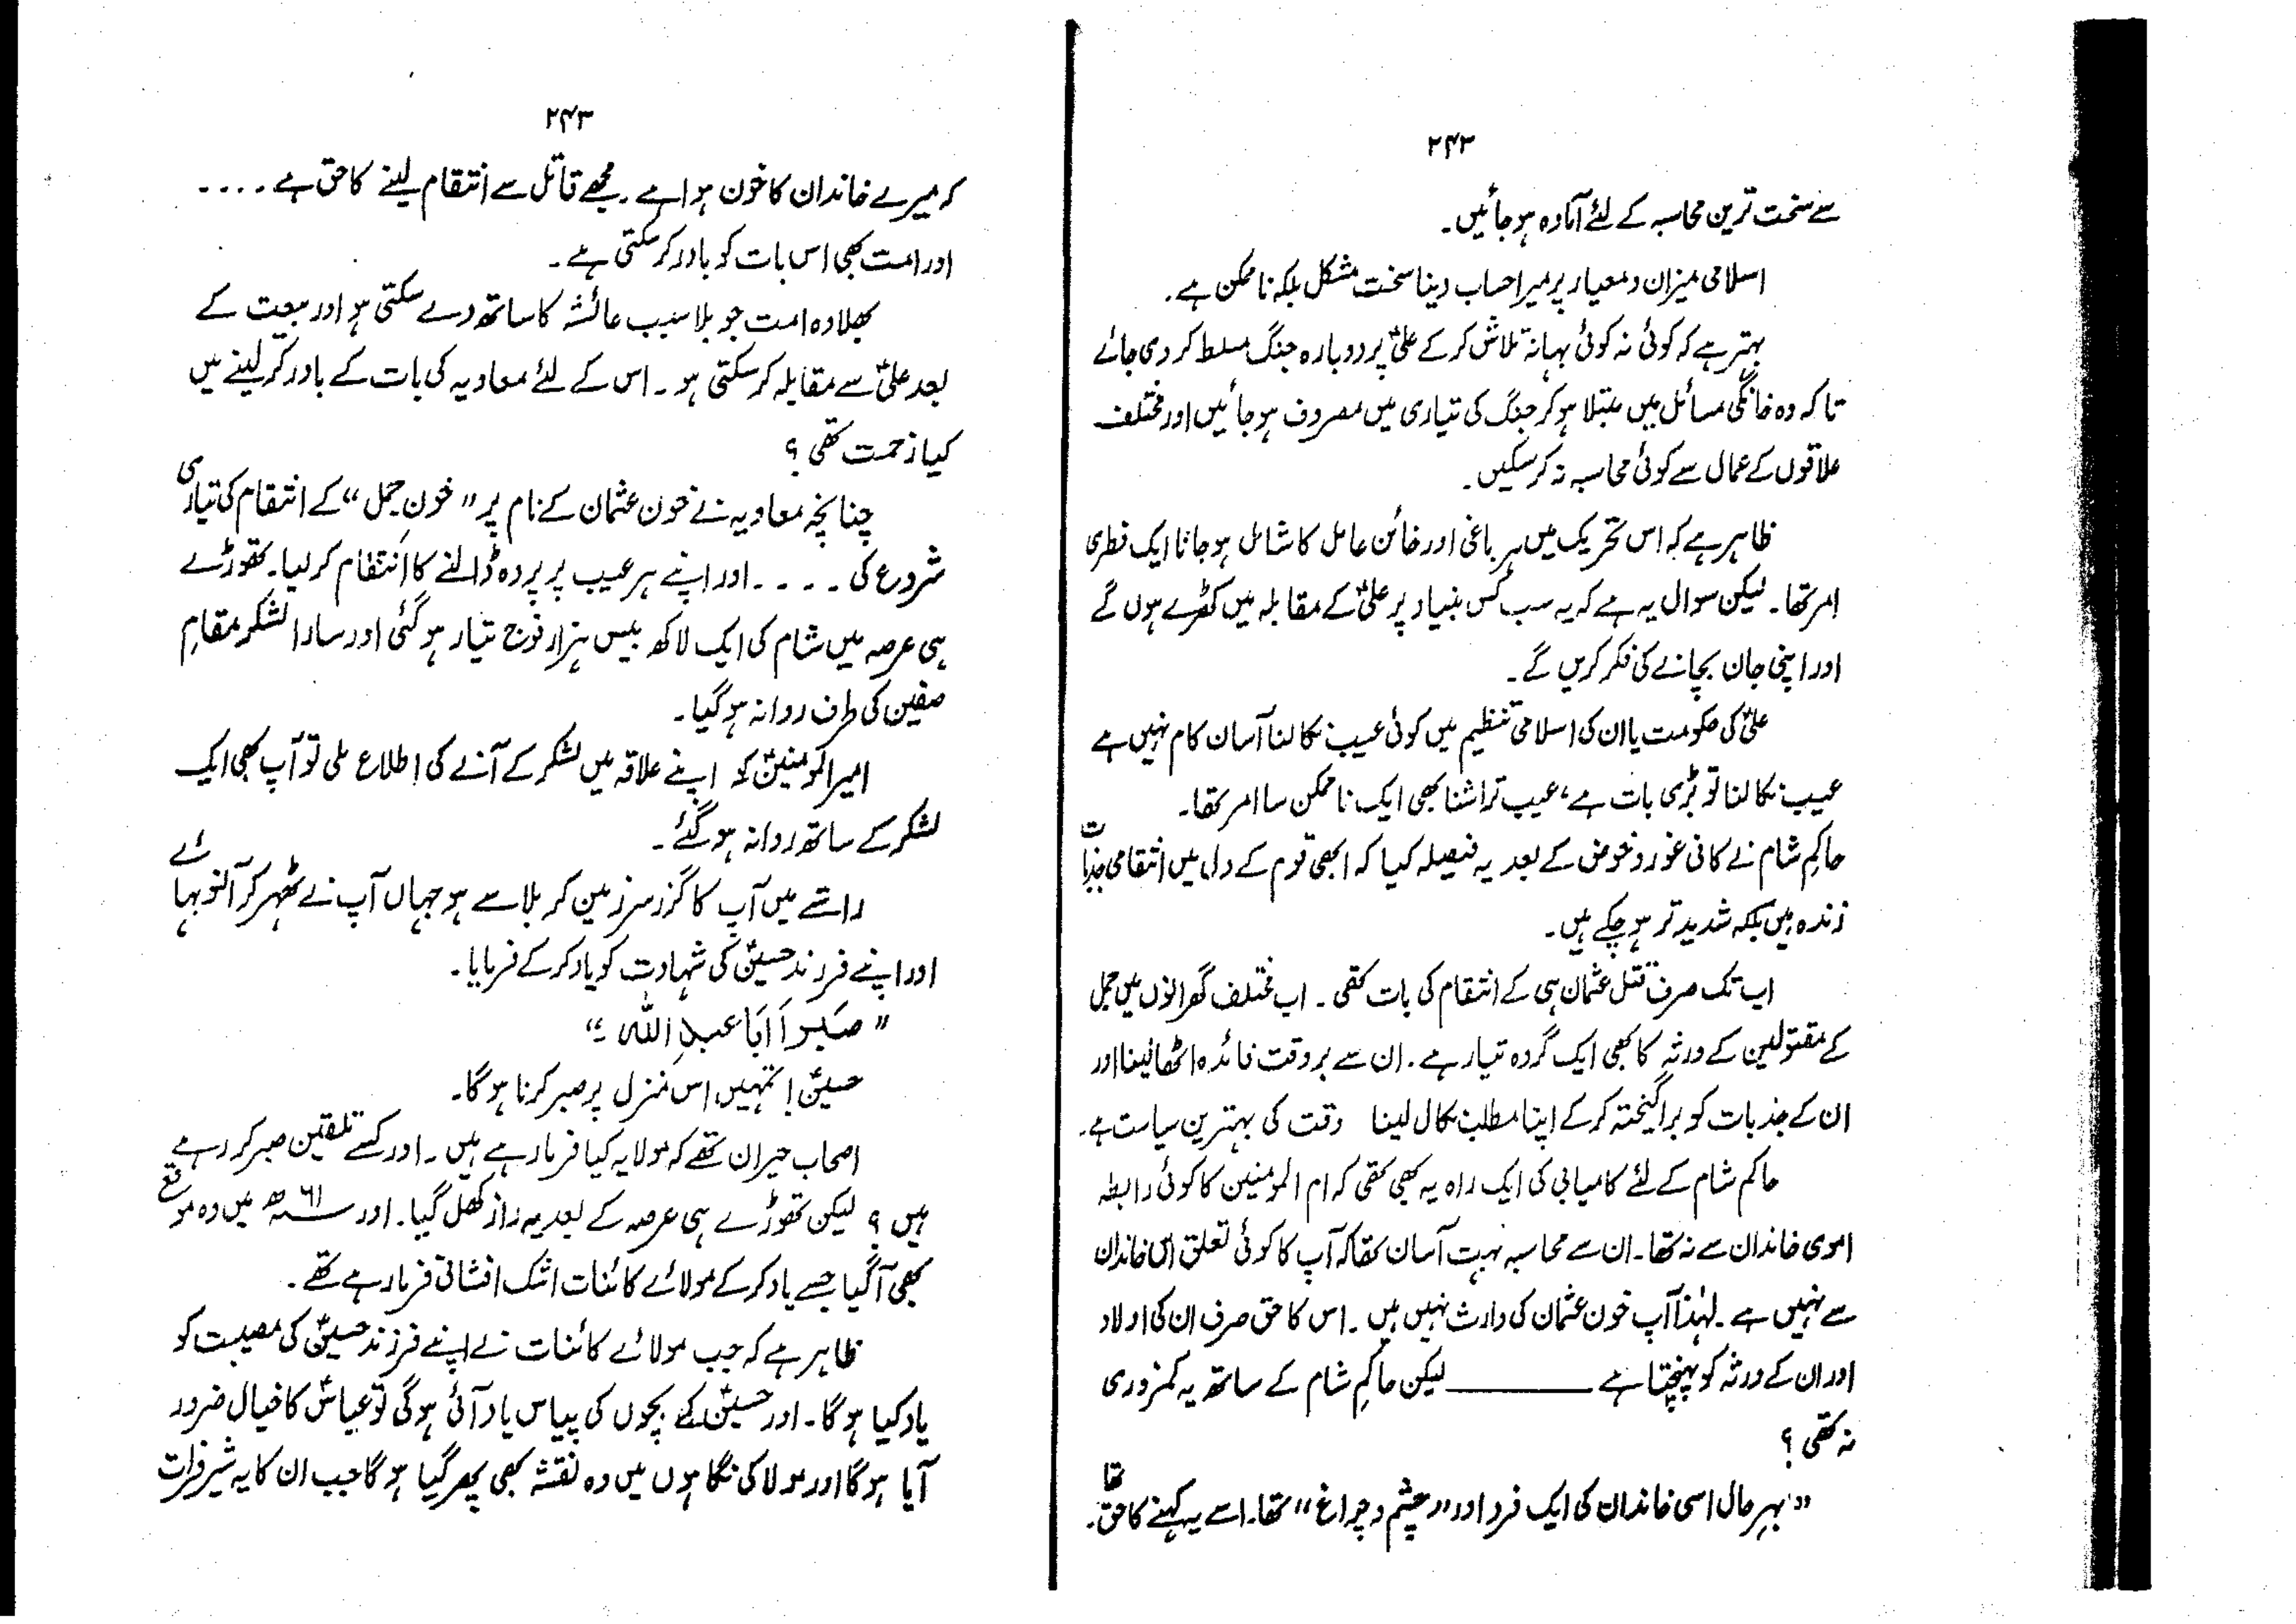 ۲۴۳
سے سخت ترین محاسبہ کے لئے آمادہ ہو جائیں۔
اسلامی میزان و معیار پر میرا حساب دینا سخت مشکل بلکہ ناممکن ہے۔
بہتر ہے کہ کوئی نہ کوئی بہانہ تلاش کر کے علیؑ پر دوبارہ جنگ مسلط کر دی جائے
تاکہ وہ خانگی مسائل میں مبتلا ہو کر جنگ کی تیاری میں مصروف ہو جائیں اور مختلف
علاقوں کے عمال سے کوئی محاسبہ نہ کر سکیں۔
ظاہر ہے کہ اس تحریک میں ہر باغی اور خائن عامل کا شامل ہو جانا ایک فطری
امر تھا۔ لیکن سوال یہ ہے کہ یہ سب کس بنیاد پر علیؑ کے مقابلہ میں کھڑے ہوں گے
اور اپنی جان بچانے کی فکر کریں گے۔
علیؑ کی حکومت یا ان کی اسلامی تنظیم میں کوئی عیب نکالنا آسان کام نہیں ہے
عیب نکالنا تو بڑی بات ہے، عیب تراشنا بھی ایک ناممکن سا امر تھا۔
حاکمِ شام نے کافی غور و خوض کے بعد یہ فیصلہ کیا کہ ابھی قوم کے دل میں انتقامی جذبات
زندہ ہیں بلکہ شدید تر ہو چکے ہیں۔
اب تک صرف قتل عثمان ہی کے انتقام کی بات تھی۔ اب مختلف گھرانوں میں جمل
کے مقتولین کے ورثہ کا بھی ایک گروہ تیار ہے۔ ان سے بروقت فائدہ اٹھا لینا اور
ان کے جذبات کو برانگیختہ کر کے اپنا مطلب نکال لینا وقت کی بہترین سیاست ہے۔
حاکم شام کے لئے کامیابی کی ایک راہ یہ بھی تھی کہ ام المومنین کا کوئی رابطہ
اموی خاندان سے نہ تھا۔ ان سے محاسبہ بہت آسان تھا کہ آپ کا کوئی تعلق اس خاندان
سے نہیں ہے۔ لہٰذا آپ خون عثمان کی وارث نہیں ہیں۔ اس کا حق صرف ان کی اولاد
اور ان کے ورثہ کو پہنچتا ہے ـــــــــ لیکن حاکمِ شام کے ساتھ یہ کمزوری
نہ تھی؟
"بہر حال اسی خاندان کی ایک فرد اور "چشم و چراغ" تھا۔ اسے یہ کہنے کا حق تھا۔
۲۴۳
کہ میرے خاندان کا خون ہوا ہے۔ مجھے قاتل سے انتقام لینے کا حق ہے ۔۔۔۔
اور امت بھی اس بات کو باور کر سکتی ہے۔
بھلا وہ امت جو بلا سبب عائشہ کا ساتھ دے سکتی ہو اور بیعت کے
بعد علیؑ سے مقابلہ کر سکتی ہو۔ اس کے لئے معاویہ کی بات کے باور کر لینے میں
کیا زحمت تھی؟
چنانچہ معاویہ نے خون عثمان کے نام پر "خونِ جمل" کے انتقام کی تیاری
شروع کی ۔۔۔۔ اور اپنے ہر عیب پر پردہ ڈالنے کا انتظام کر لیا۔ تھوڑے
ہی عرصہ میں شام کی ایک لاکھ بیس ہزار فوج تیار ہو گئی اور سارا لشکر مقامِ
صفین کی طرف روانہ ہو گیا۔
امیر المومنینؑ کو اپنے علاقہ میں لشکر کے آنے کی اطلاع ملی تو آپ بھی ایک
لشکر کے ساتھ روانہ ہو گئے۔
راستے میں آپ کا گزر سرزمین کربلا سے ہو جہاں آپ نے ٹھہر کر آنسو بہائے
اور اپنے فرزند حسینؑ کی شہادت کو یاد کر کے فرمایا۔
"صَبراً اَبَا عبدِ اللّٰہ۔"
حسینؑ! تمہیں اس منزل پر صبر کرنا ہو گا۔
اصحاب حیران تھے کہ مولا یہ کیا فرما رہے ہیں۔ اور کسے تلقین صبر کر رہے
ہیں؟ لیکن تھوڑے ہی عرصہ کے بعد یہ راز کھل گیا۔ اور ۶۱ھ میں وہ موقع
بھی آ گیا جسے یاد کر کے مولائے کائنات اشک افشانی فرما رہے تھے۔
ظاہر ہے کہ جب مولائے کائنات نے اپنے فرزند حسینؑ کی مصیبت کو
یاد کیا ہو گا۔ اور حسینؑ کے بچوں کی پیاس یاد آئی ہو گی تو عباسؑ کا خیال ضرور
آیا ہو گا اور مولا کی نگاہوں میں وہ نقشہ بھی پھر گیا ہو گا جب ان کا یہ شیر فرات